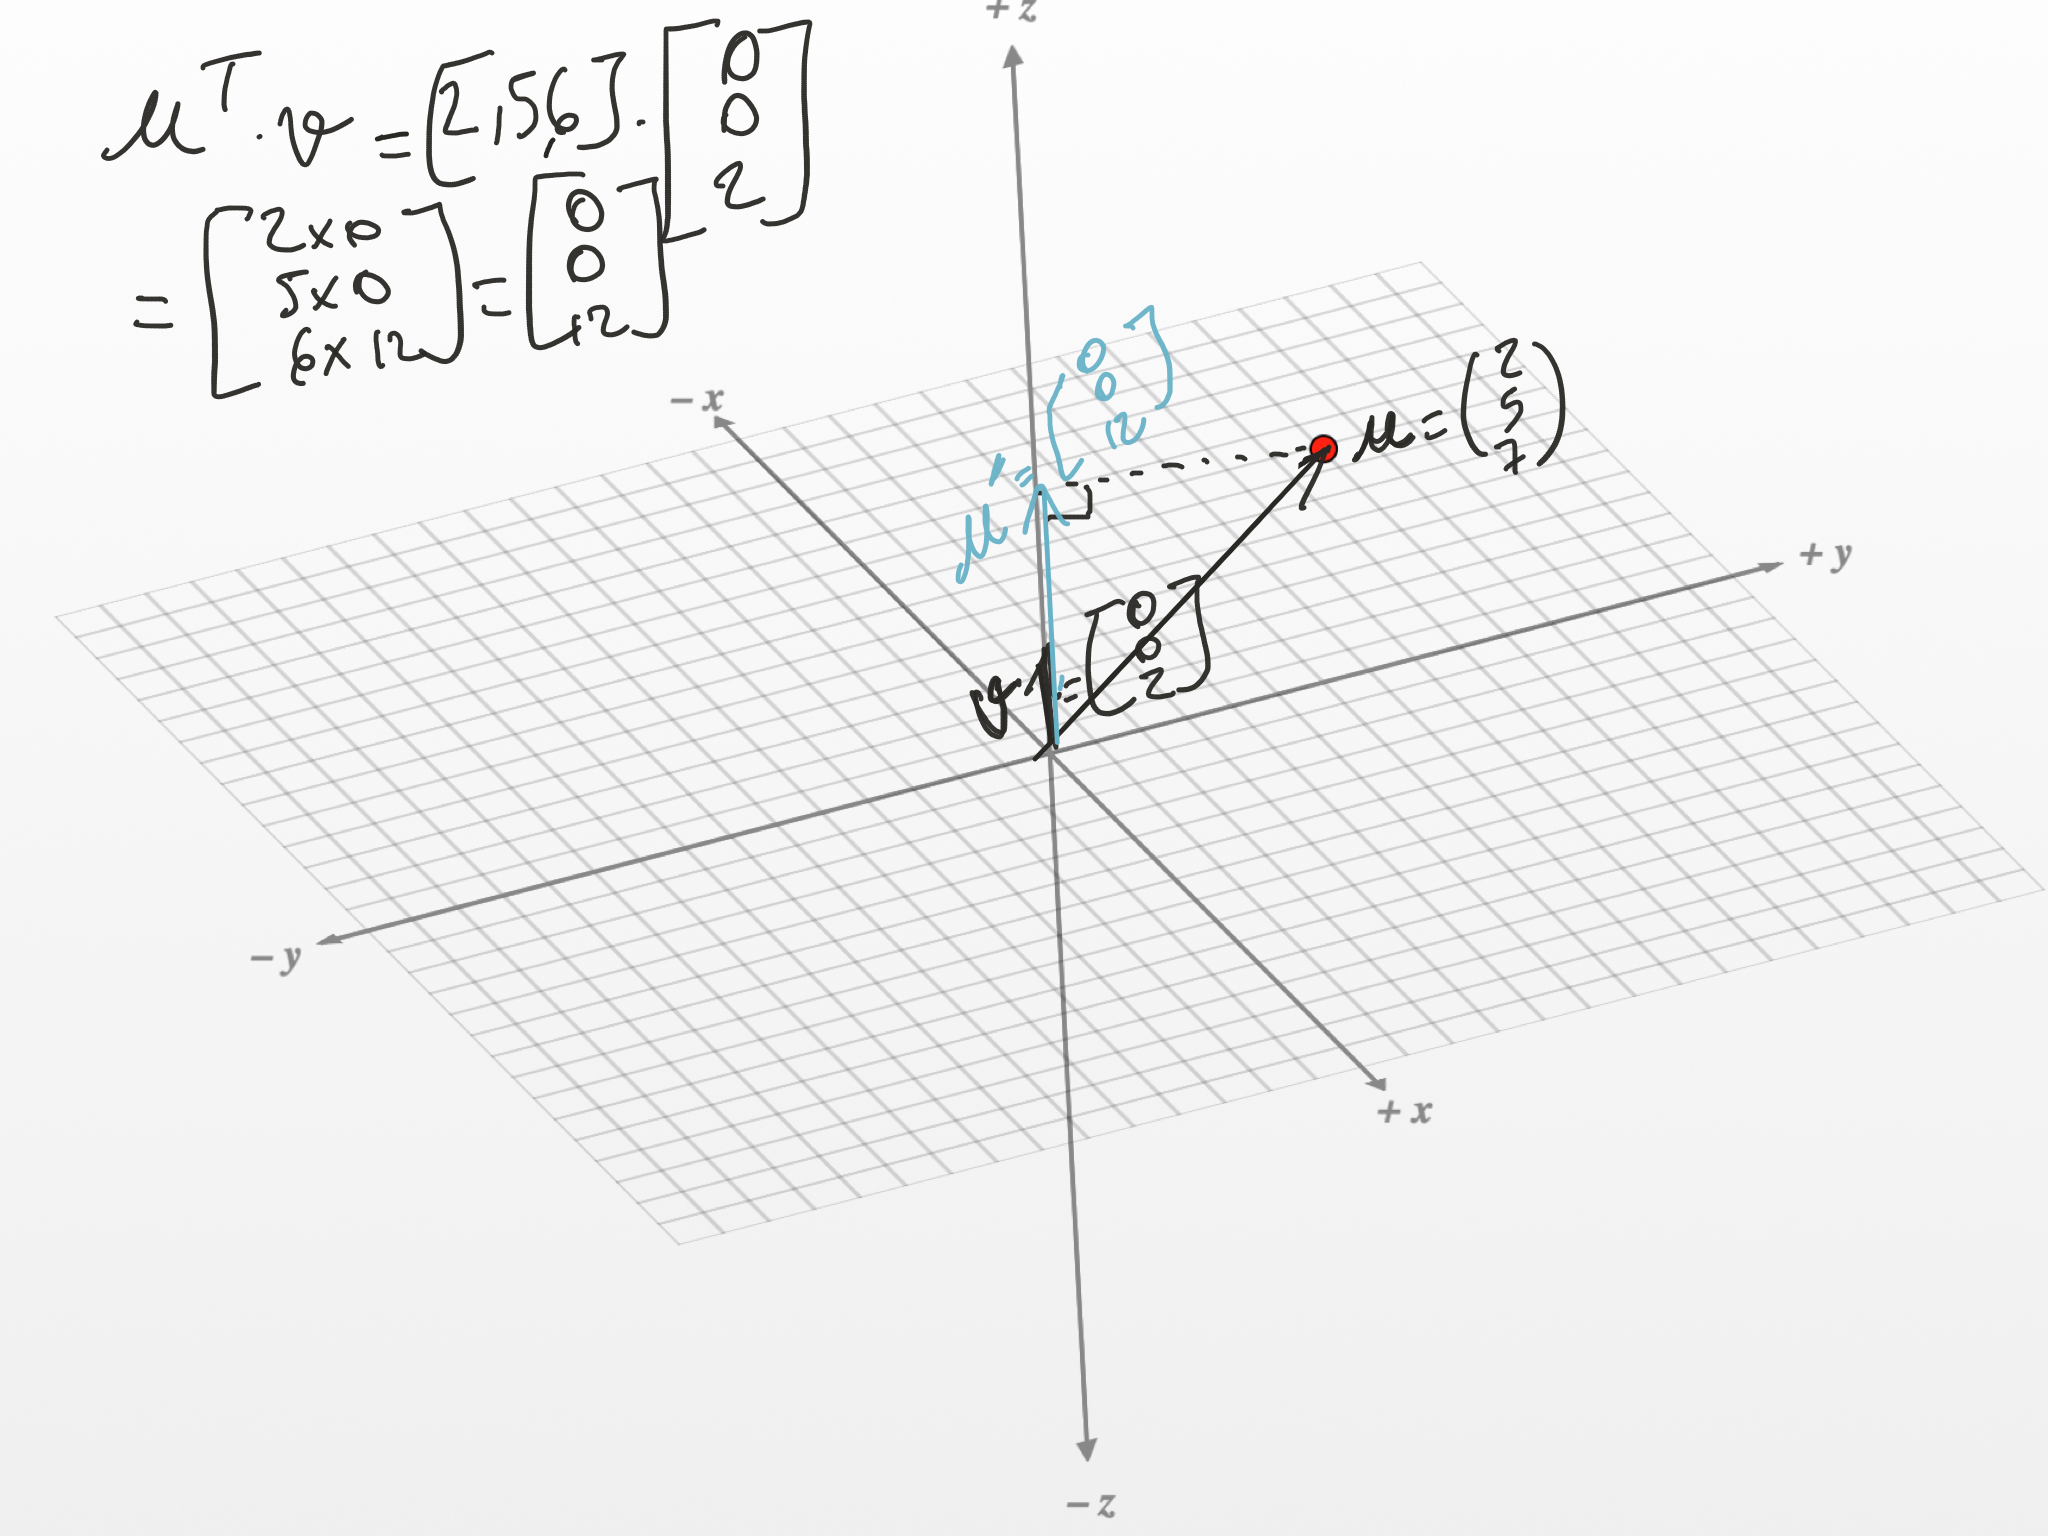 μᵀ · v = [2, 5, 6] · [0 0 2]
= [2x0 5x0 6x12] = [0 0 12]
+ z
- x
μ' = [0 0 12]
μ = (2 5 7)
+ y
v = [0 0 2]
- y
+ x
- z